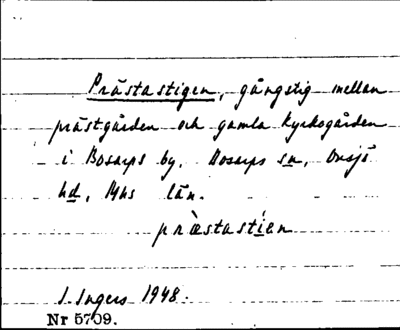 Prästastigen, gångstig mellan
prästgården och gamla kyrkogården
i Bosarps by, Bosarps sn, Onsjö
hd, Mhs län.
prästastian
I. Ingers 1948.
Nr 5709.